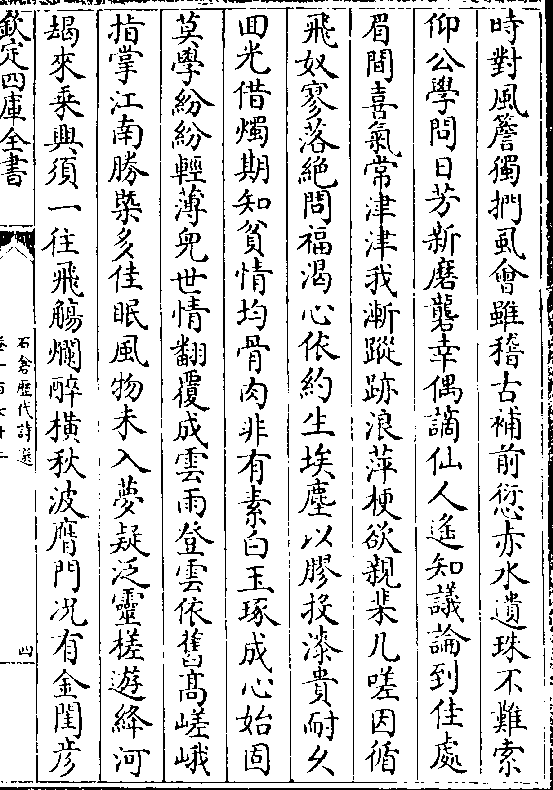 時對風簷獨捫虱會雖稽古補前愆赤水遺珠不難索
仰公學問日芳新磨礱幸偶謫仙人遙知議論到佳處
眉間喜氣常津津我漸蹤跡浪萍梗欲親棐几嗟因循
飛奴寥落絶問福渴心依約生埃塵以膠投漆貴耐久
囬光借燭期知貧情均骨肉非有素白玉琢成心始固
莫學紛紛輕薄兒世情翻覆成雲雨登雲依舊髙嵯峨
指掌江南勝槩多佳眠風物未入夢疑泛靈槎遊絳河
朅來乗興須一往飛觴爛醉横秋波膺門况有金閨彦
欽定四庫全書
石倉歴代詩選
四